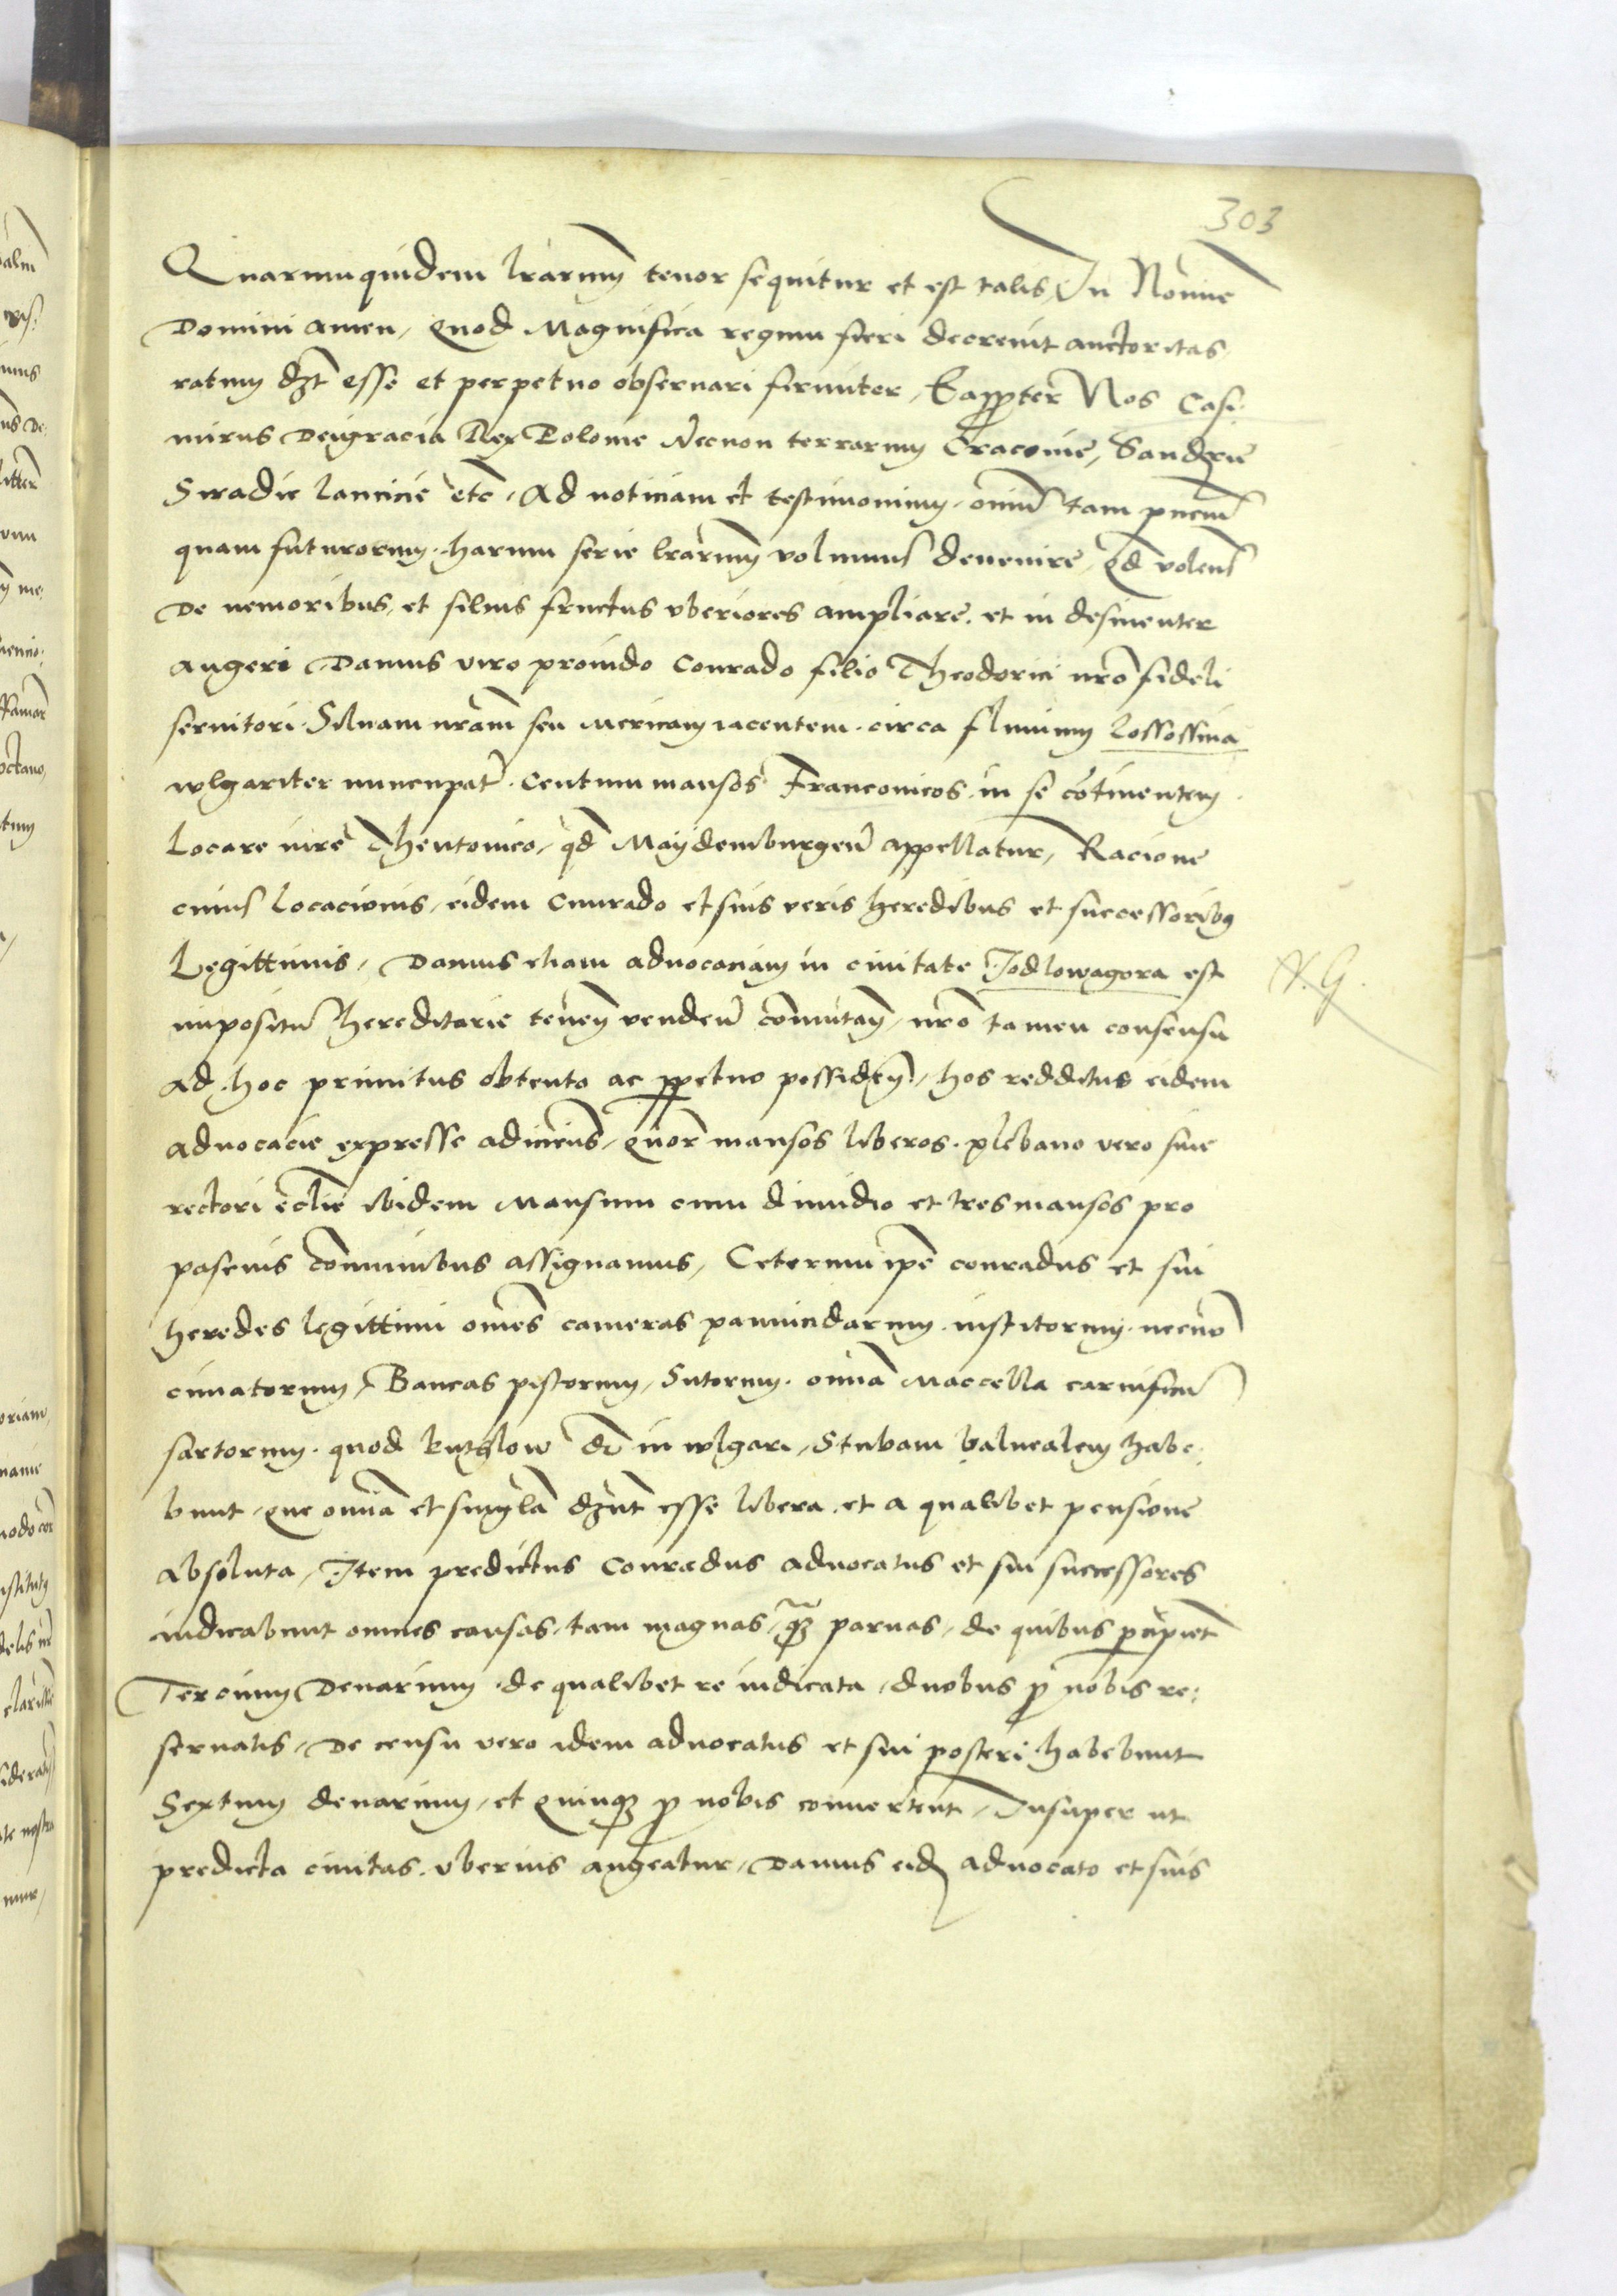 303
Quarumquidem lrarum tenor sequitur et est talis, In Nomine
Domini amen, Quod Magnifica regum fieri decreuit auctoritas
ratum dz̄t esse et perpetuo obseruari firmiter, Eapp̄ter Nos Casi:
mirus Deigracia Rex Polonie Necnon terrarum Cracouie, Sandr̄ie
Siradie lancicie etc̄, Ad noticiam et testimonium, omn̄iū tam pn̄ciū
quam futurorum, harum serie lrārum volumus deuenire, Qd̄ volen̄s
De nemoribus, et siluis fructus vberiores ampliare, et in desinenter
augeri Damus viro prouido Conrado filio Theodorici nrō fideli
seruitori Siluam nrām seu mericam iacentem, circa fluuium Lossossina
wlgariter nuncupat̄ . Centum mansos Franconicos in se cōtinentem
Locare iure Theutonico, qd̄ Maydemburgen̄ appellatur, Racione
cuius Locacionis, eidem Cunrado et suis veris heredibus et successoribus
Legittimis, Damus eciam aduocaciam in ciuitate Jodlowagora est
impositū hereditarie tenen̄ venden̄ cōmutan̄, nrō tamen consensu
ad hoc primitus obtento ac pp̄etuo possiden̄, hos redditus eidem
aduocacie expresse adiicien̄s, Q̄uor mansos liberos, plebano vero siue
rectori eclīe ibidem Mansum cum dimidio et tres mansos pro
pascuis cōmunibus assignamus, Ceterum ipē Conradus et sui
heredes legittimi omēs cameras pannicidarum, institorum, necnō
cimatorum, Bancas pistorum, Sutorum, omīa Maccella carnificū
sartorum, quod kuthlow dr̄ in wlgari, Stubam balnealem habe:
bunt, que omīa et singula dz̄nt esse libera, et a qualibet pensione
absoluta, Item predictus Conradus aduocatus et sui successores
iudicabunt omnes causas, tam magnas q̄ꝫ paruas, de quibus p̄cipiet
Tercium Denarium de qualibet re iudicata, duobus p̄ nobis re:
seruatis, De censu vero idem aduocatus et sui posteri habebunt
Sextum denarium, et quinqꝫ p̄ nobis conuertent, Insuper ut
predicta ciuitas, vberius augeatur, Damus eid̄ aduocato et suis
X. G.